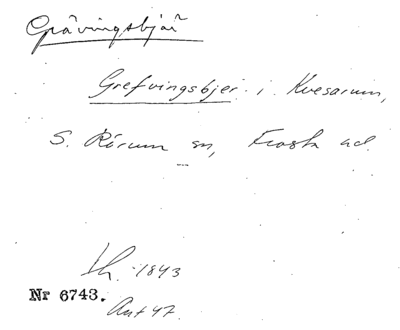 Grävingsbjär
Grefvingsbjer i Kvesarum,
S. Rörum sn, Frosta hd.
Lh. 1843
Nr 6743.
Ant 47.